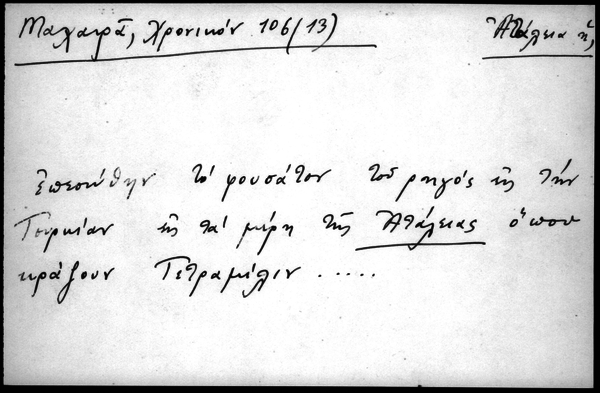 Μαχαιρᾶ, Χρονικόν 106(13) Ἀτάλεια ἡ,
ἐπεσώθην τὸ φουσάτον τοῦ ρηγός εἰς τὴν
Τουρκίαν εἰς τὰ μέρη τῆς Ἀτάλειας ὅπου
κράζουν Τετραμίλιν .....